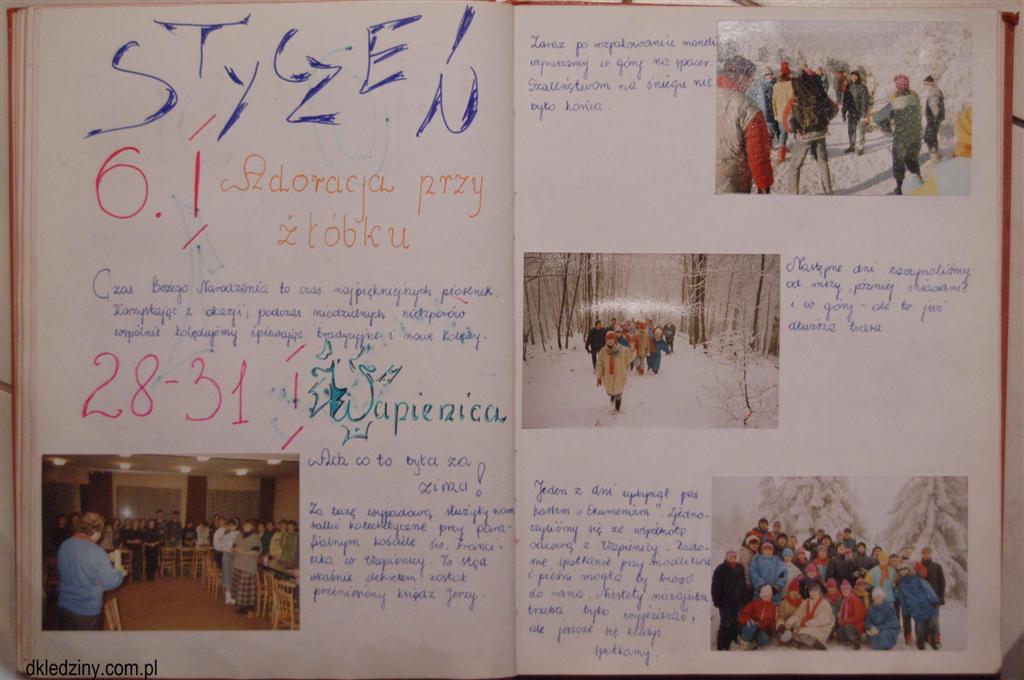 STYCZEŃ
6.I Adoracja przy
żłóbku
Czas Bożego Narodzenia to czas najpiękniejnych piosenek.
Korzystając z okazji, podczas niedzielnych nieszporów
wspólnie kolędujemy śpiewając tradycyjne i nowe kolędy.
28-31 I Wapienica
Ach co to była za
zima!
Za bazę wypadową służyły nam
salki katechetyczne przy para-
fialnym kościele św. Franci-
szka w Wapienicy. To stąd
właśnie dekretem został
przeniesiony ksiądz Jerzy.
Zaraz po rozpakowaniu
wyruszamy w góry na spacer.
Szaleństwom na śniegu nie
było końca.
Następne dni zaczynaliśmy
od mszy, później śniadanie
i w góry - ale to już
dłuższa trasa.
Jeden z dni upłynął pod
hasłem "Ekumenizm". Zjedno-
czyliśmy się ze wspólnotą
oazową z Wapienicy. Rado-
sne spotkanie przy modlitwie
i pieśni mogła by trwać
do rana. Niestety nazajutrz
trzeba było wyjeżdżać,
ale jeszcze się kiedyś
spotkamy.
dkledziny.com.pl